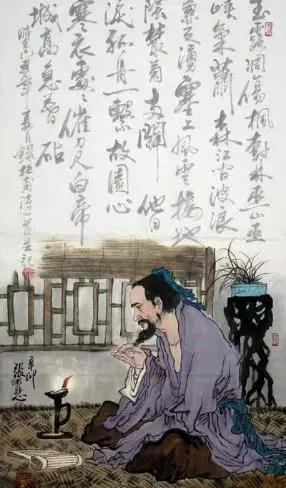 玉露凋傷楓樹林巫山巫
峽氣蕭森江間波浪
兼天湧塞上風雲接地
陰叢菊兩開他日
淚孤舟一繫故園心
寒衣處々催刀尺白帝
城高急暮砧
錄杜甫詩一首並記
辛卯
張